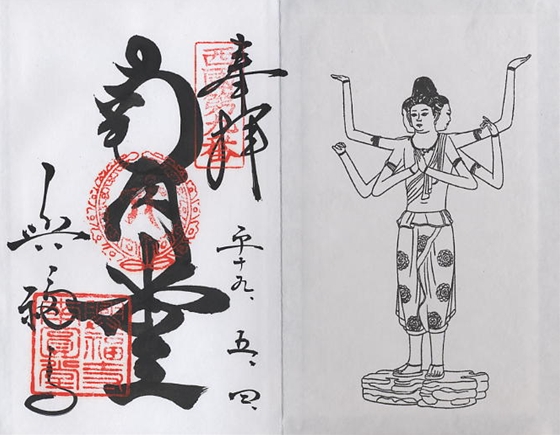 奉拝
西国第九番
平十九、五、四、
南円堂
興福寺
興福寺
南圓堂